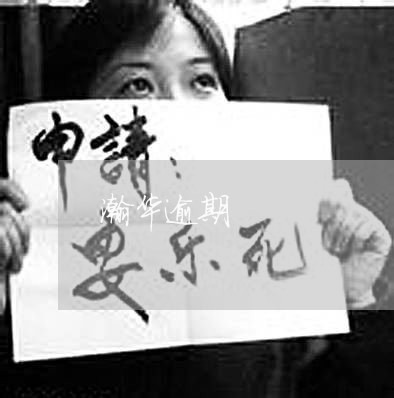 申請：
瀚华逾期
安乐死